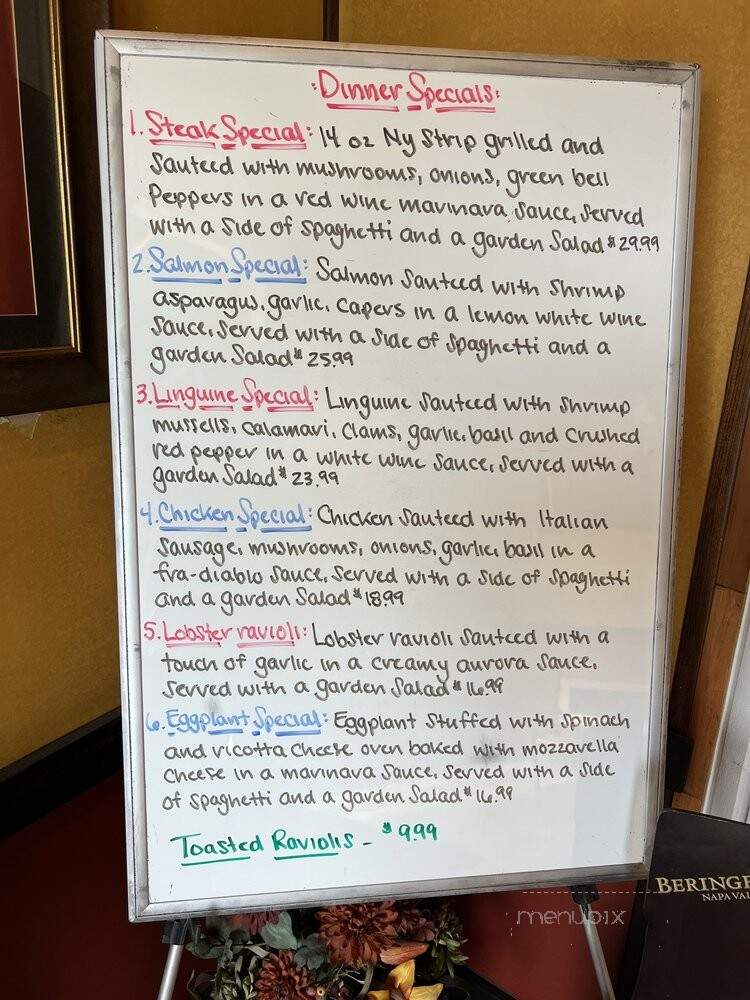 Dinner Specials:
1. Steak Special: 14 oz Ny Strip grilled and
Sauteed with mushrooms, onions, green bell
Peppers in a red wine marinara sauce, served
with a side of spaghetti and a garden Salad $29.99
2. Salmon Special: Salmon Sauteed with Shrimp
asparagus, garlic, capers in a lemon white wine
Sauce, served with a side of spaghetti and a
garden Salad $25.99
3. Linguine Special: Linguine Sauteed with Shrimp
mussells, calamari, clams, garlic, basil and crushed
red pepper in a white wine sauce, served with a
garden Salad $23.99
4. Chicken Special: Chicken Sauteed with Italian
Sausage, mushrooms, onions, garlic, basil in a
fra-diablo sauce, served with a side of spaghetti
and a garden Salad $18.99
5. Lobster ravioli: Lobster ravioli sauteed with a
touch of garlic in a creamy aurora sauce,
Served with a garden Salad $16.99
6. Eggplant Special: Eggplant stuffed with spinach
and ricotta cheese oven baked with mozzarella
cheese in a marinara sauce, served with a side
of spaghetti and a garden Salad $16.99
Toasted Raviolis - $9.99
BERING
NAPA VAL
menubix